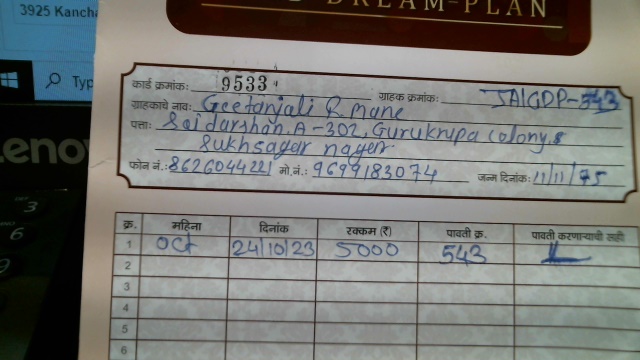 3925 Kancha
DREAM-PLAN
Typ
enov
कार्ड क्रमांक: 9533
ग्राहक क्रमांक: JAIGDP-543
ग्राहकाचे नाव: Geetanjali R Mane
पत्ता: Sai darshan, A-302, Gurukrupa colony, s
Sukhsagar nagar.
फोन नं.: 8626044221 मो.नं.: 9699183074 जन्म दिनांक: 11/11/75
क्र. महिना दिनांक रक्कम (₹) पावती क्र. पावती करणाऱ्याची सही
1 Oct 24/10/23 5000 543
2
3
4
5
6
3
6
9